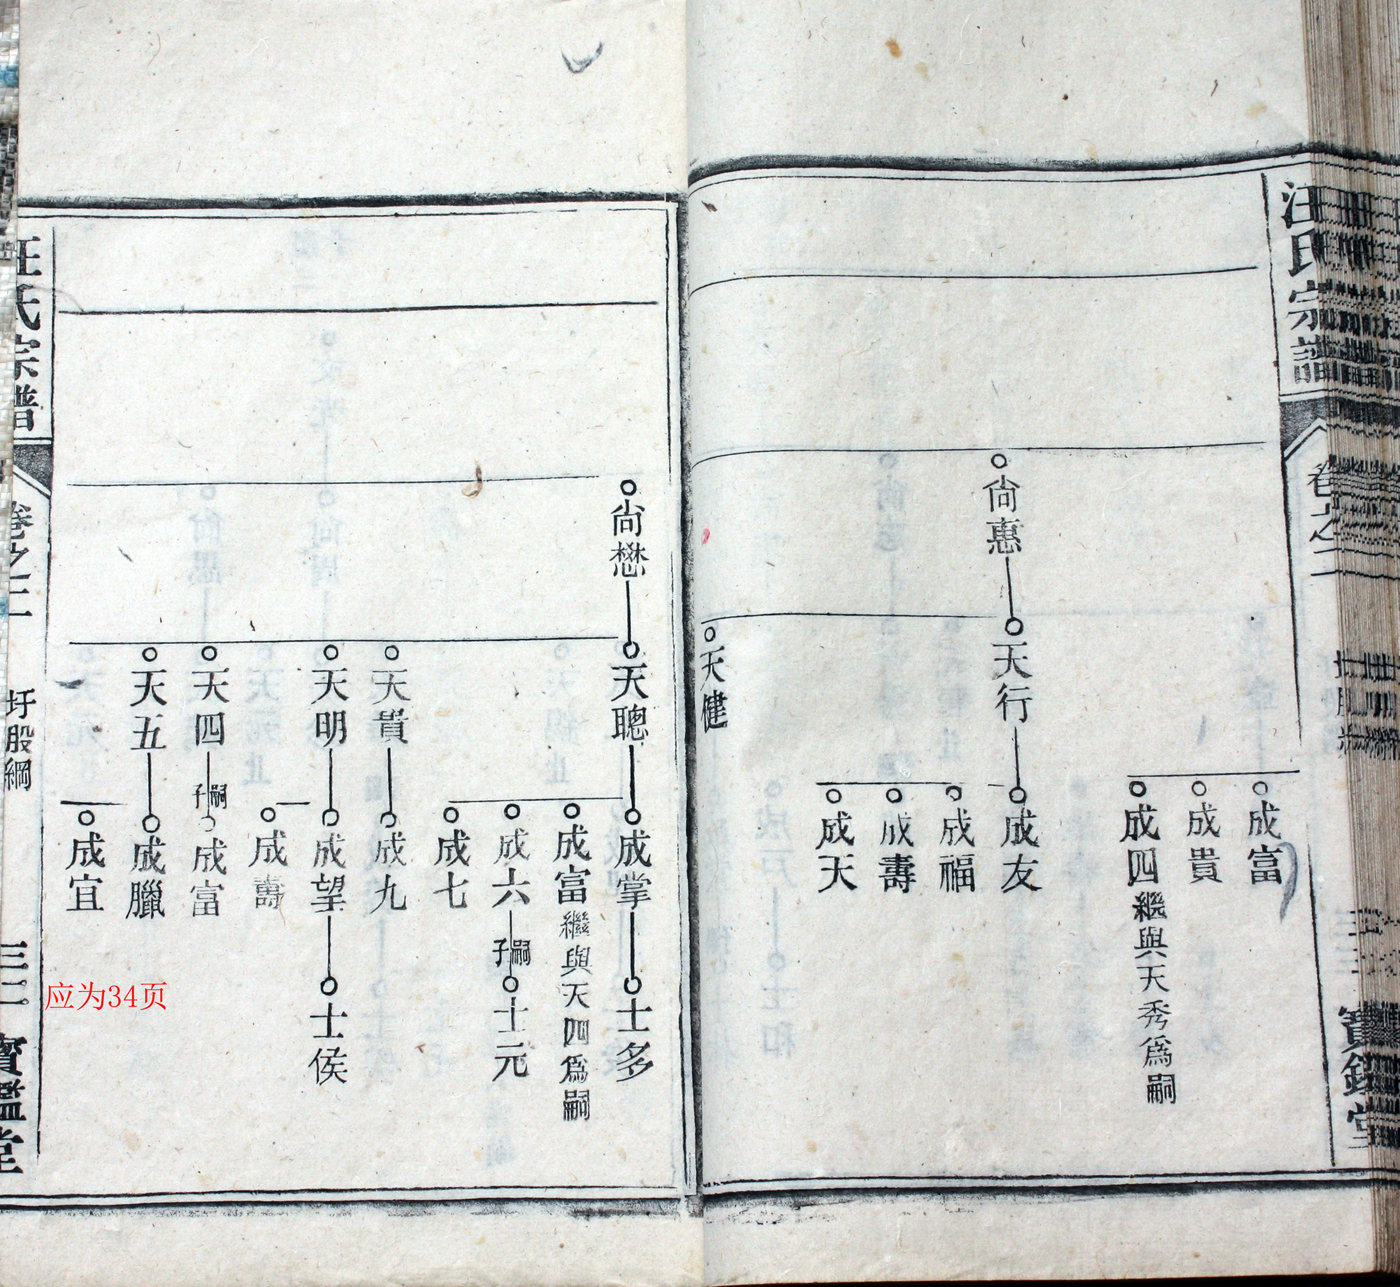 汪氏宗譜
卷之二
成富
成貴
成四繼與天秀爲嗣
尚惠
天行
成友
成福
成壽
成天
天健
尚懋
天聰
成掌
士多
成富繼與天四爲嗣
成六
嗣子
士元
成七
天貴
成九
天明
成望
士侯
成壽
天四
嗣子
成富
天五
成臘
成宜
汪氏宗譜
卷之二
圩股綱
三三
寶鑑堂
应为34页